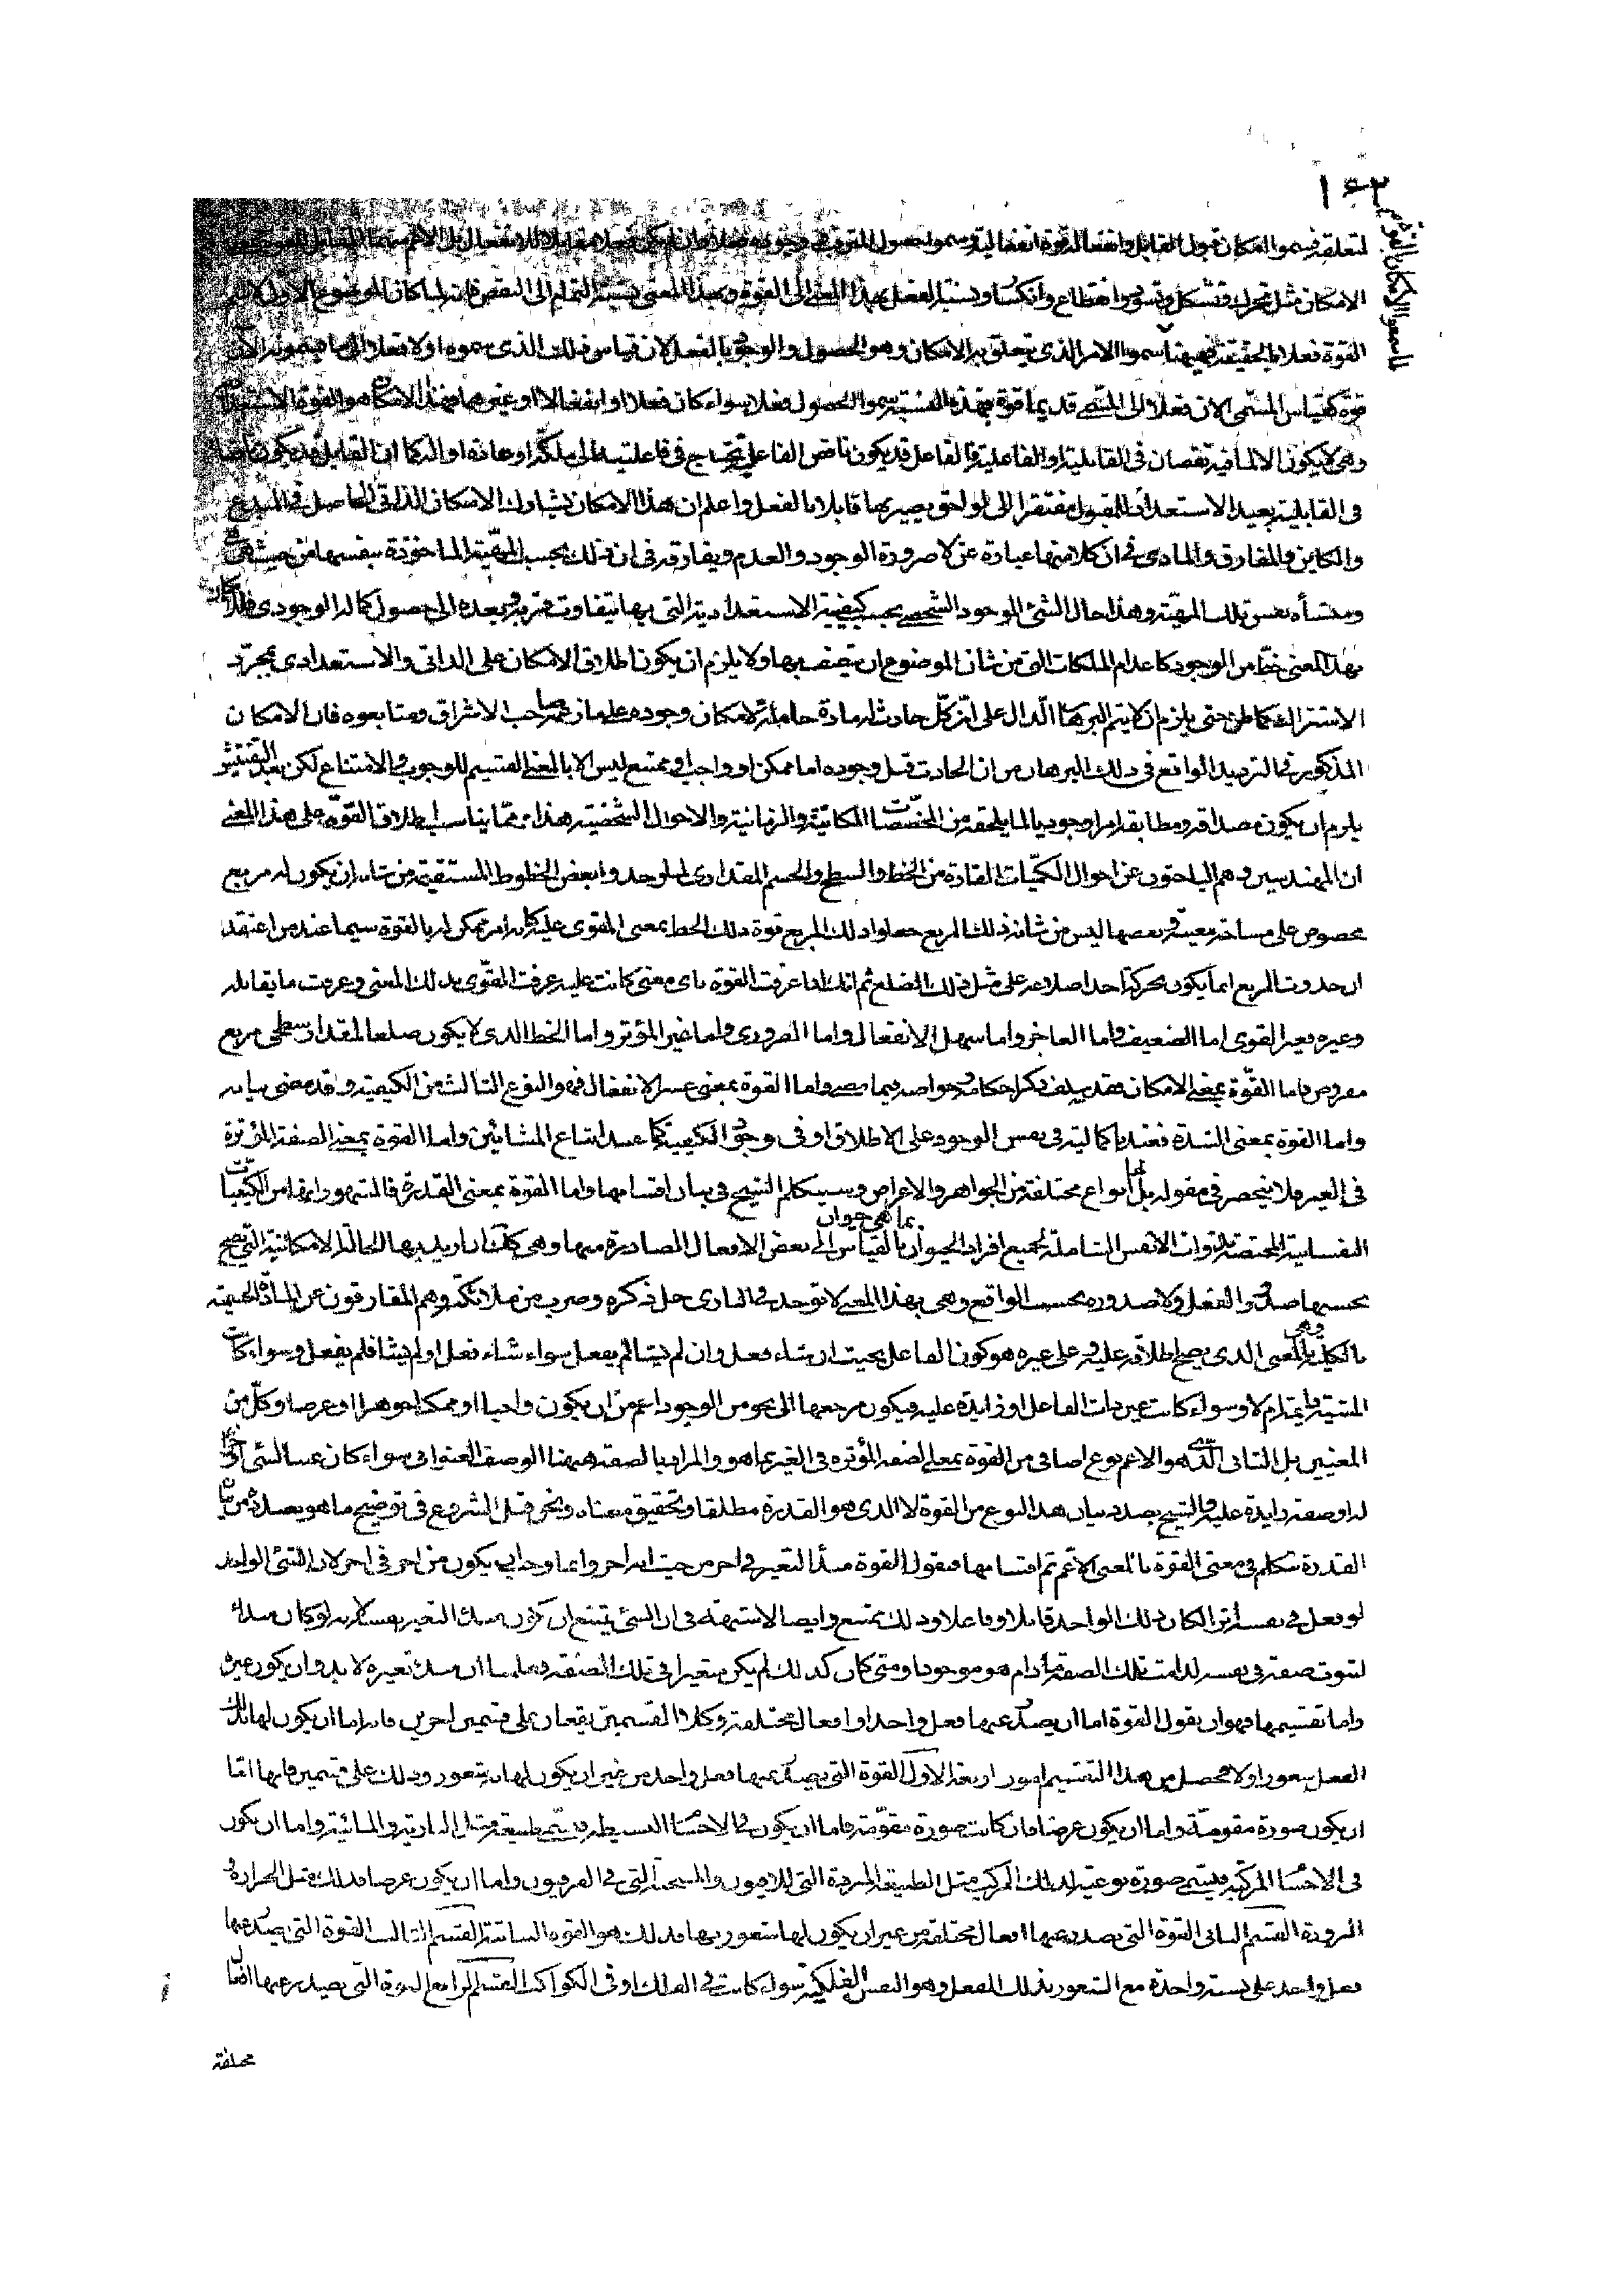 ١٦٢
لتعلقه فسموا امكان قبول القابل وانفعاله قوة انفعالية وسموا حصول المقوى وجوده فعلا وان لم يكن فعلا مقابلا للانفعال بل الاعم منهما
فلما سموا الامكان بالقوة
الامكان مثل تحرك وتشكل وتسود وانقطاع وانكسار ونسبة الفعل بهذا المعنى الى القوة وبهذا المعنى نسبة التمام الى النقص فانه لما كان الموضوع الاول لاسم
القوة فعلا بالحقيقة فههنا سموا الامر الذي يتعلق به الامكان وهو الحصول والوجود بالفعل لان قياس ذلك الذي سموه اولا فعلا الى ما يسمونه الآن
قوة كقياس المسمى الان فعلا الى المسمى قديما قوة فبهذه النسبة سموا الحصول فعلا سواء كان فعلا او انفعالا او غيرهما فهذا الامكان هو القوة الاستعدادية
وهي لا يكون الا لما فيه نقصان في القابلية او الفاعلية فالفاعل قد يكون ناقص الفاعلية يحتاج في فاعليته الى ملكة او معاونة او الة كما ان القابل قد يكون ناقصا
في القابلية بعيد الاستعداد للمقبول مفتقرا الى لواحق يصير بها قابلا بالفعل واعلم ان هذا الامكان يشارك الامكان الذاتي الحاصل في المبدع
والكاين والمفارق والمادي في ان كلا منهما عبارة عن لا ضرورة الوجود والعدم ويفارقه في ان ذلك بحسب المهية الماخوذة بنفسها من حيث هي هي
ومنشأه نفس تلك المهية وهذا حال الشئ الموجود الشخصي بحسب كيفية الاستعدادية التي بها يتفاوت قربه وبعده الى حصول كماله الوجودي فلامكان
بهذا المعنى حظ من الوجود كاعدام الملكات التي من شان الموضوع ان يتصف بها ولا يلزم ان يكون اطلاق الامكان على الذاتي والاستعدادي بمجرد
الاشتراك كما ظن حتى يلزم ان لا يتم البرهان الدال على ان كل حادث له مادة حاملة لامكان وجوده على ما زعمه صاحب الاشراق ومتابعوه فان الامكان
المذكور في الترديد الواقع في ذلك البرهان من ان الحادث قبل وجوده اما ممكن او واجب او ممتنع ليس الا بالمعنى القسيم للوجوب والامتناع لكن بعد التفتيش
يلزم ان يكون مصداقه ومطابقه امرا وجوديا لما يلحقه من المخصصات المكانية والزمانية والاحوال الشخصية هذا ومما يناسب اطلاق القوة على هذا المعنى
ان المهندسين وهم الباحثون عن احوال الكميات القارة من الخط والسطح والجسم المقداري لما وجدوا بعض الخطوط المستقيمة من شانه ان يكون له مربع
مخصوص على مساحة معينة وبعضها ليس من شانه ذلك المربع جعلوا ذلك المربع قوة ذلك الخط بمعنى المقوى عليه كانه امر ممكن له بالقوة سيما عند من اعتقد
ان حدوث المربع انما يكون بحركة احد اضلاعه على مثل ذلك الضلع ثم انك اذا عرفت القوة باى معنى كانت عليه عرفت القوى بذلك المعنى وعرفت ما يقابله
وغيره فغير القوى اما الضعيف واما العاجز واما سهل الانفعال واما الضروري واما غير المؤثر واما الخط الذي لا يكون ضلعا لمقدار سطحى مربع
مفروض فاما القوة بمعنى الامكان فقد سلف ذكر احكامه وخواصه فيما مضى واما القوة بمعنى عسر الانفعال فهو النوع الثالث من الكيفية وقد مضى بيانه
واما القوة بمعنى الشدة فعندنا كمالية في نفس الوجود على الاطلاق او في وجود الكيفية كما عند اتباع المشائين واما القوة بمعنى الصفة المؤثرة
في الغير فلا ينحصر في مقولة بل لها انواع مختلفة من الجواهر والاعراض وسيتكلم الشيخ في بيان اقسامها واما القوة بمعنى القدرة فالمشهور انها من الكيفيات
النفسانية المختصة بذوات الانفس الشاملة لجميع افراد الحيوان بما هي حيوان بالقياس الى بعض الافعال الصادرة منها وهي كذلك ان اريد بها الحالة الامكانية التي يصح
بحسبها صدور الفعل ولا صدوره بحسب الواقع وهي بهذا المعنى لا توجد في الباري جل ذكره وضرب من ملائكته وهم المفارقون عن المادة الجسمية
بالكلية وهي بالمعنى الذي يصح اطلاقه عليه وعلى غيره هو كون الفاعل بحيث ان شاء فعل وان لم يشا لم يفعل سواء شاء ففعل او لم يشا فلم يفعل وسواء كانت
المشية دائمة ام لا وسواء كانت عين ذات الفاعل او زايدة عليه فيكون مرجعها الى نحو من الوجود اعم من ان يكون واجبا او ممكنا جوهرا او عرضا وكل من
المعنيين بل الثاني الذي هو الاعم نوع اضافي من القوة بمعنى الصفة المؤثرة في الغير بما هو والمراد بالصفة ههنا الوصف العنواني سواء كان عين الشئ او جزءا
له او صفة زايدة عليه والشيخ بصدد بيان هذا النوع من القوة لا الذي هو القدرة مطلقا وتحقيق معناه ونحن قبل الشروع في توضيح ما هو بصدده من بيان
القدرة نتكلم في معنى القوة بالمعنى الاعم ثم اقسامها فنقول القوة مبدأ التغير في اخر من حيث انه اخر وانما وجب ان يكون من اخر في اخر لان الشئ الواحد
لو فعل في نفسه أثرا لكان ذلك الواحد قابلا وفاعلا وذلك ممتنع وايضا لا شبهة في ان الشئ يمتنع ان يكون مبدء التغير نفسه لانه لو كان مبدء
لثبوت صفة في نفسه لدامت تلك الصفة ما دام هو موجودا ومتى كان كذلك لم يكن متغيرا في تلك الصفة فعلمنا ان مبدء تغيره لا بد وان يكون غيره
واما تقسيمها فهو ان يقول القوة اما ان يصدر عنها فعل واحد او افعال مختلفة وكلا القسمين يقعان على قسمين اخرين فانه اما ان يكون لها بذلك
الفعل شعور او لا فحصل من هذا التقسيم امور اربعة الاول القوة التي يصدر عنها فعل واحد من غير ان يكون لها به شعور وذلك على قسمين فانها اما
ان يكون صورة مقومة واما ان يكون عرضا فان كانت صورة مقومة فاما ان يكون في الاجسام البسيطة فيسمى طبيعة مثل النارية والمائية واما ان يكون
في الاجسام المركبة فيسمى صورة نوعية لذلك المركب مثل الطبيعة المبردة التي للافيون والمسخنة التي في الفرفيون واما ان يكون عرضا فذلك مثل الحرارة و
البرودة القسم الثاني القوة التي يصدر عنها افعال مختلفة من غير ان يكون لها شعور بها فذلك هو القوة النباتية القسم الثالث القوة التي يصدر عنها
فعل واحد على نسبة واحدة مع الشعور بذلك الفعل وهو النفس الفلكية سواء كانت في الفلك او في الكواكب القسم الرابع القوة التي يصدر عنها افعال
مختلفة